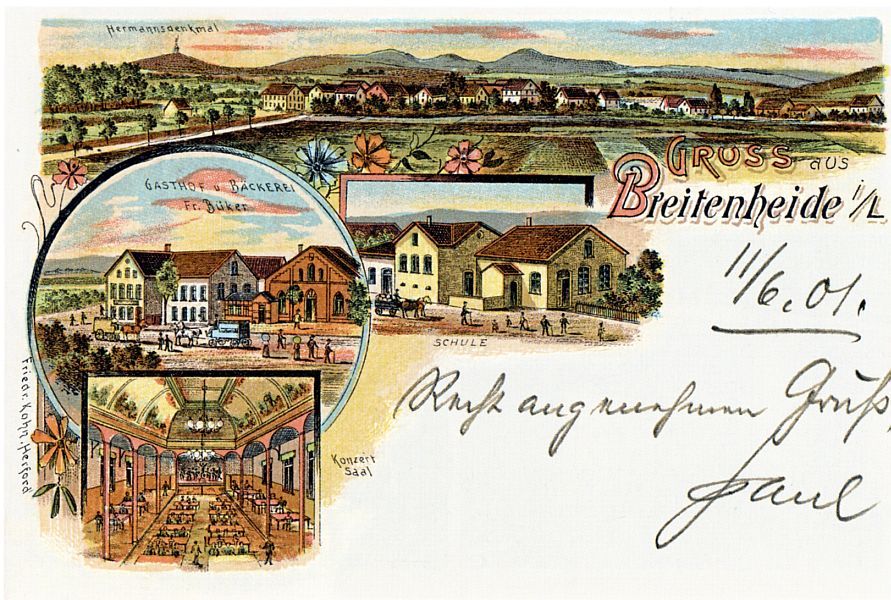 Hermannsdenkmal
GRUSS aus
Breitenheide i/L
GASTHOF U BÄCKEREI
Fr. Büker
SCHULE
Konzert
Saal
Friedr. Kohn. Herford
11/6.01.
Recht angenehmen Gruß,
Paul